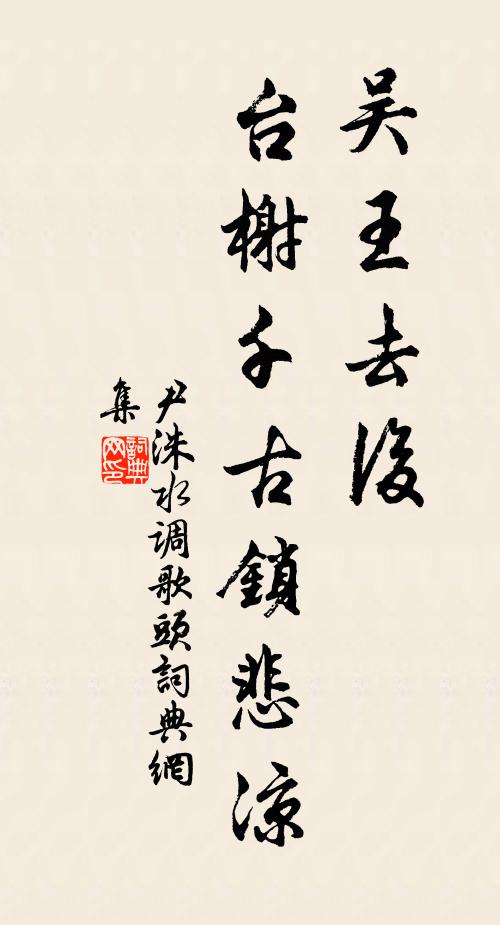 吴王去後
台榭千古鎖悲涼
尹洙水调歌頭詞典網
集
詞典网印